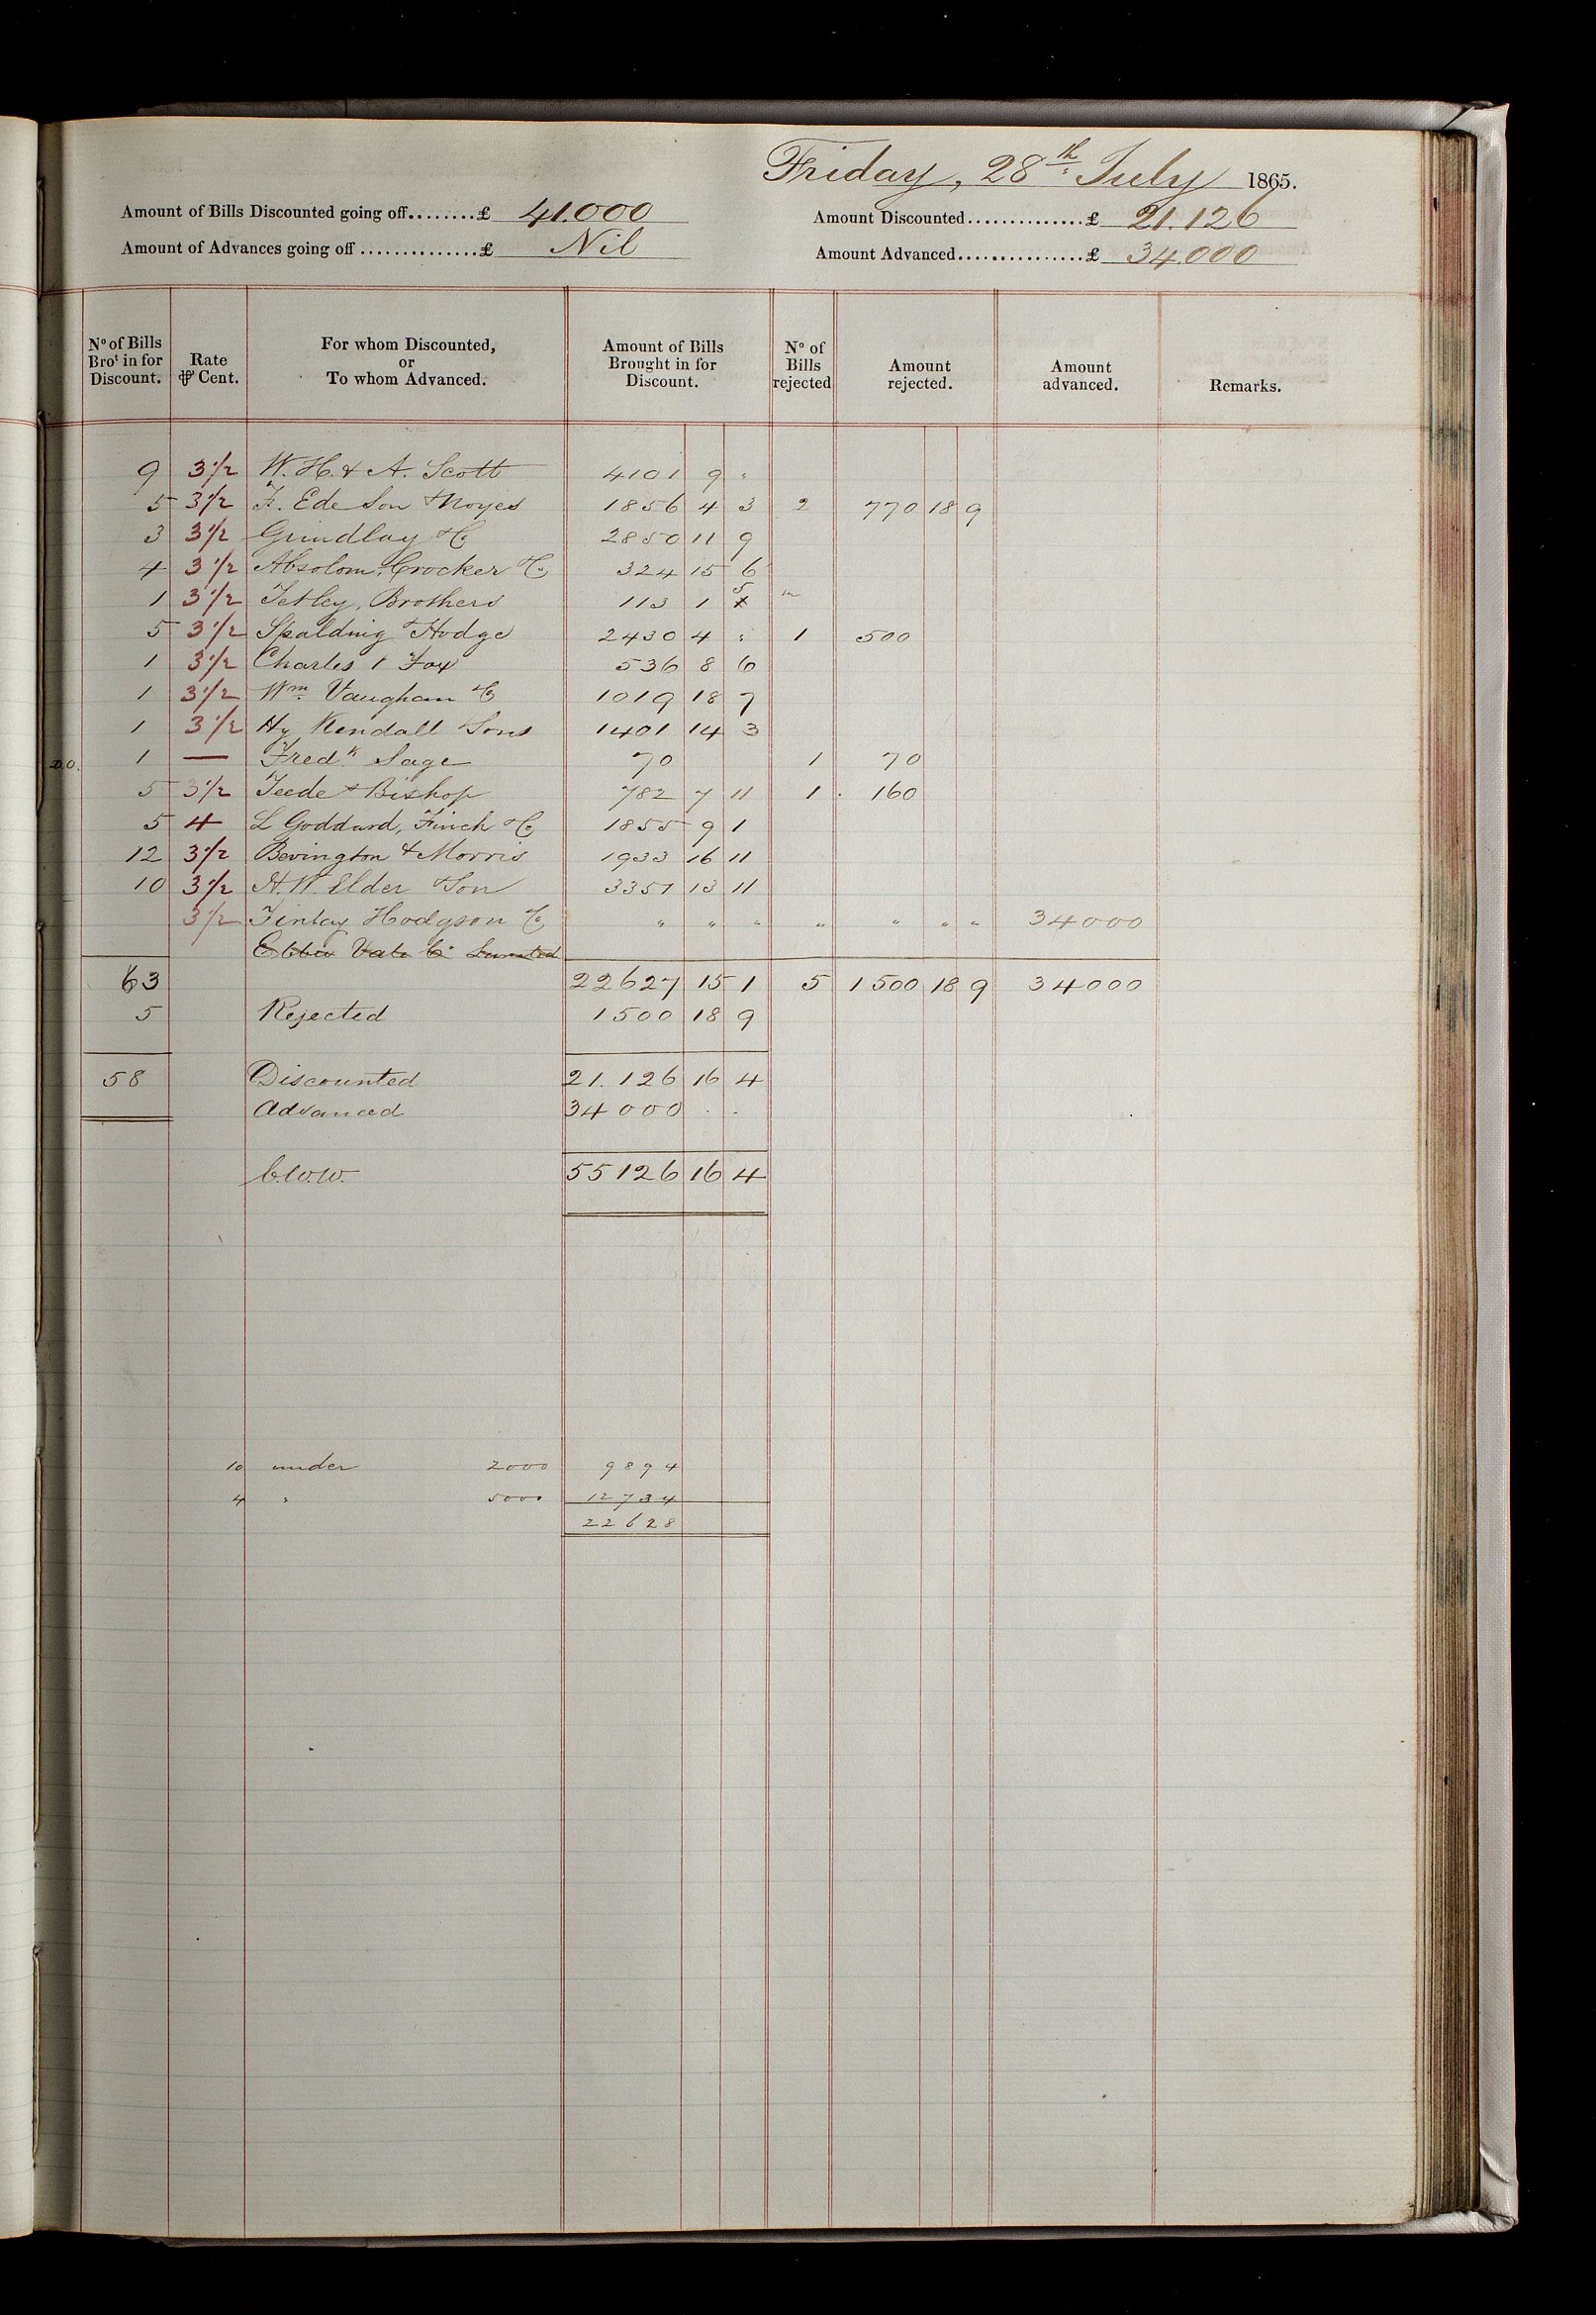 Friday, 28th July 1865.
Amount of Bills Discounted going off........£ 41.000 Amount Discounted..............£ 21.126
Amount of Advances going off ..............£ Nil Amount Advanced...............£ 34.000
No of Bills Brot in for Discount. Rate ₱ Cent. For whom Discounted, or To whom Advanced. Amount of Bills Brought in for Discount. No of Bills rejected Amount rejected. Amount advanced. Remarks.
9 3 1/2 W. H. & A. Scott 4101 9 "
5 3 1/2 F. Ede Son & Noyes 1856 4 3 2 770 18 9
3 3 1/2 Grindlay & Co 2850 11 9
4 3 1/2 Absolom, Crocker & Co 324 15 6
1 3 1/2 Tetley, Brothers 113 1 5
5 3 1/2 Spalding & Hodge 2430 4 " 1 500
1 3 1/2 Charles Fox 536 8 6
1 3 1/2 Wm Vaughan & Co 1019 18 7
1 3 1/2 Hy Kendall & Sons 1401 14 3
D.O. 1 — Fredk Sage 70 1 70
5 3 1/2 Teede & Bishop 782 7 11 1 160
5 4 L Goddard, Finch & Co 1855 9 1
12 3 1/2 Bevington & Morris 1933 16 11
10 3 1/2 H. W. Elder & Son 3351 13 11
3 1/2 Finlay Hodgson & Co " " " " " " " 34000
Ebbw Vale Co Limited
63 22627 15 1 5 1500 18 9 34000
5 Rejected 1500 18 9
58 Discounted 21.126 16 4
Advanced 34000 . .
C.W.W. 55126 16 4
10 under 2000 9894
4 " 5000 12734
22628